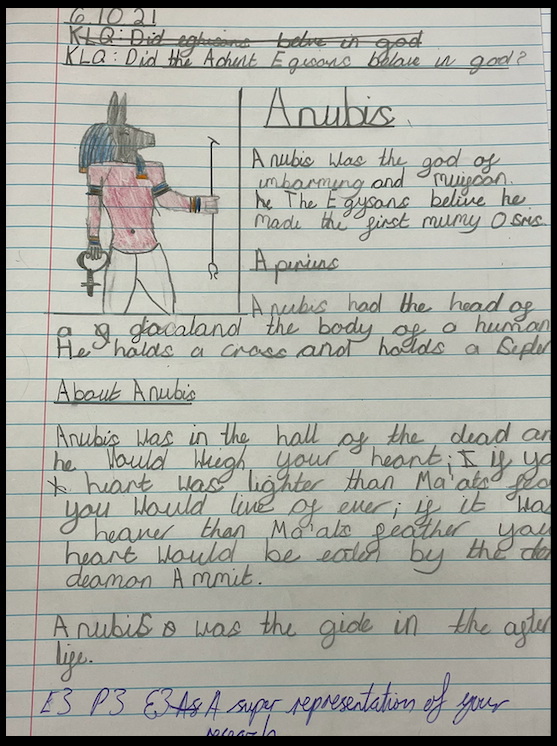 6.10.21
KLQ: Did eghisans belve in god
KLQ: Did the Achent Egisans belave in god?
Anubis
Anubis was the god of
imbarming and
he The Egysans belive he
made the first mumy Osris
Aperiens
Anubis had the head of
a g gacaland the body of a human
He holds a cross and holds a Septer
About Anubis
Anubis was in the hall of the dead an
he would wiegh your heart; I if yo
heart was lighter than Ma'ats fea
you would live of ever; if it wa
heaver than Ma'ats feather you
heart would be eaten by the de
deamon Ammit.
Anubis was the gide in the after
life.
E3 P3 E3 As A super representation of your
research